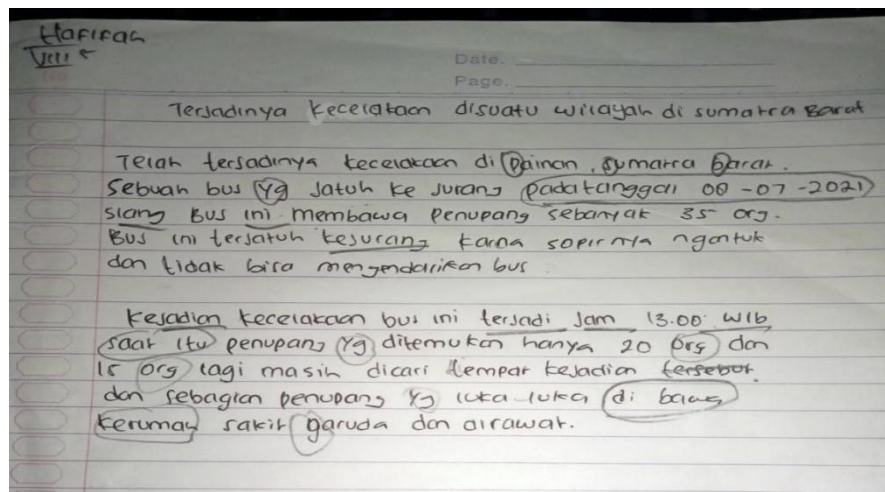 Hafifah
VIII 5
No
Date.
Page.
Terjadinya kecelakaan disuatu wilayah di sumatra Barat
Telah terjadinya kecelakaan di Painan, sumatra Barat.
Sebuah bus yg Jatuh ke Jurang pada tanggal 08 -07 -2021
siang Bus ini membawa Penupang sebanyak 35 org.
Bus ini terjatuh kejurang karna sopirnya ngantuk
dan tidak bisa mengendarikan bus
Kejadian kecelakaan bus ini terjadi Jam 13.00 WIb
saat itu penupang yg ditemukan hanya 20 Org dan
15 org lagi masih dicari tempat kejadian tersebut.
dan sebagian penupang yg luka luka di bawa
kerumah sakit garuda dan dirawat.